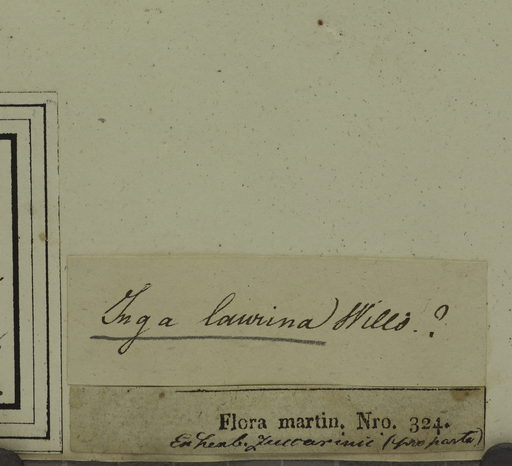 Inga laurina Willd. ?
Flora martin. Nro. 324.
Ex herb. Zuccarinii (pro parte)